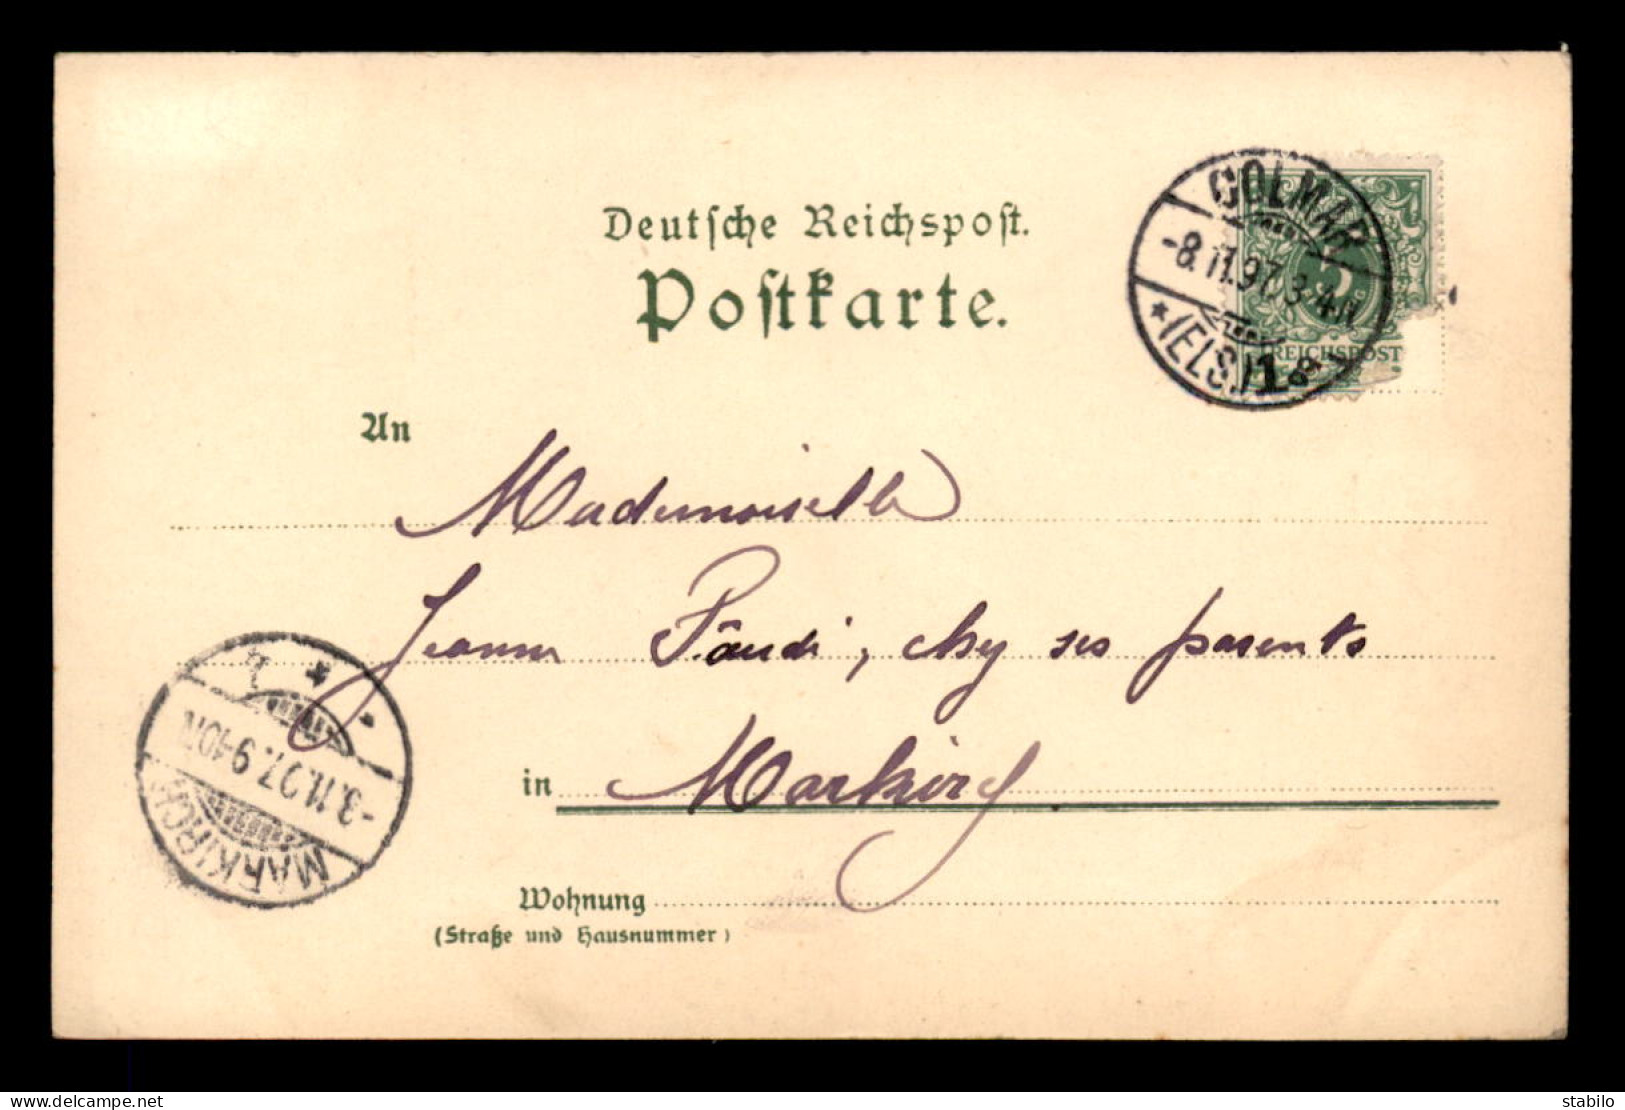 Deutsche Reichspost.
Postkarte.
COLMAR
-8.11.97. 3-4N.
* (ELS.) 1
5
REICHSPOST
An
Mademoiselle
Jeanne chez ses parents
in Markirch.
MARKIRCH
-8.11.97. 9-10N.
Wohnung
(Straße und Hausnummer)
www.delcampe.net
stabilo